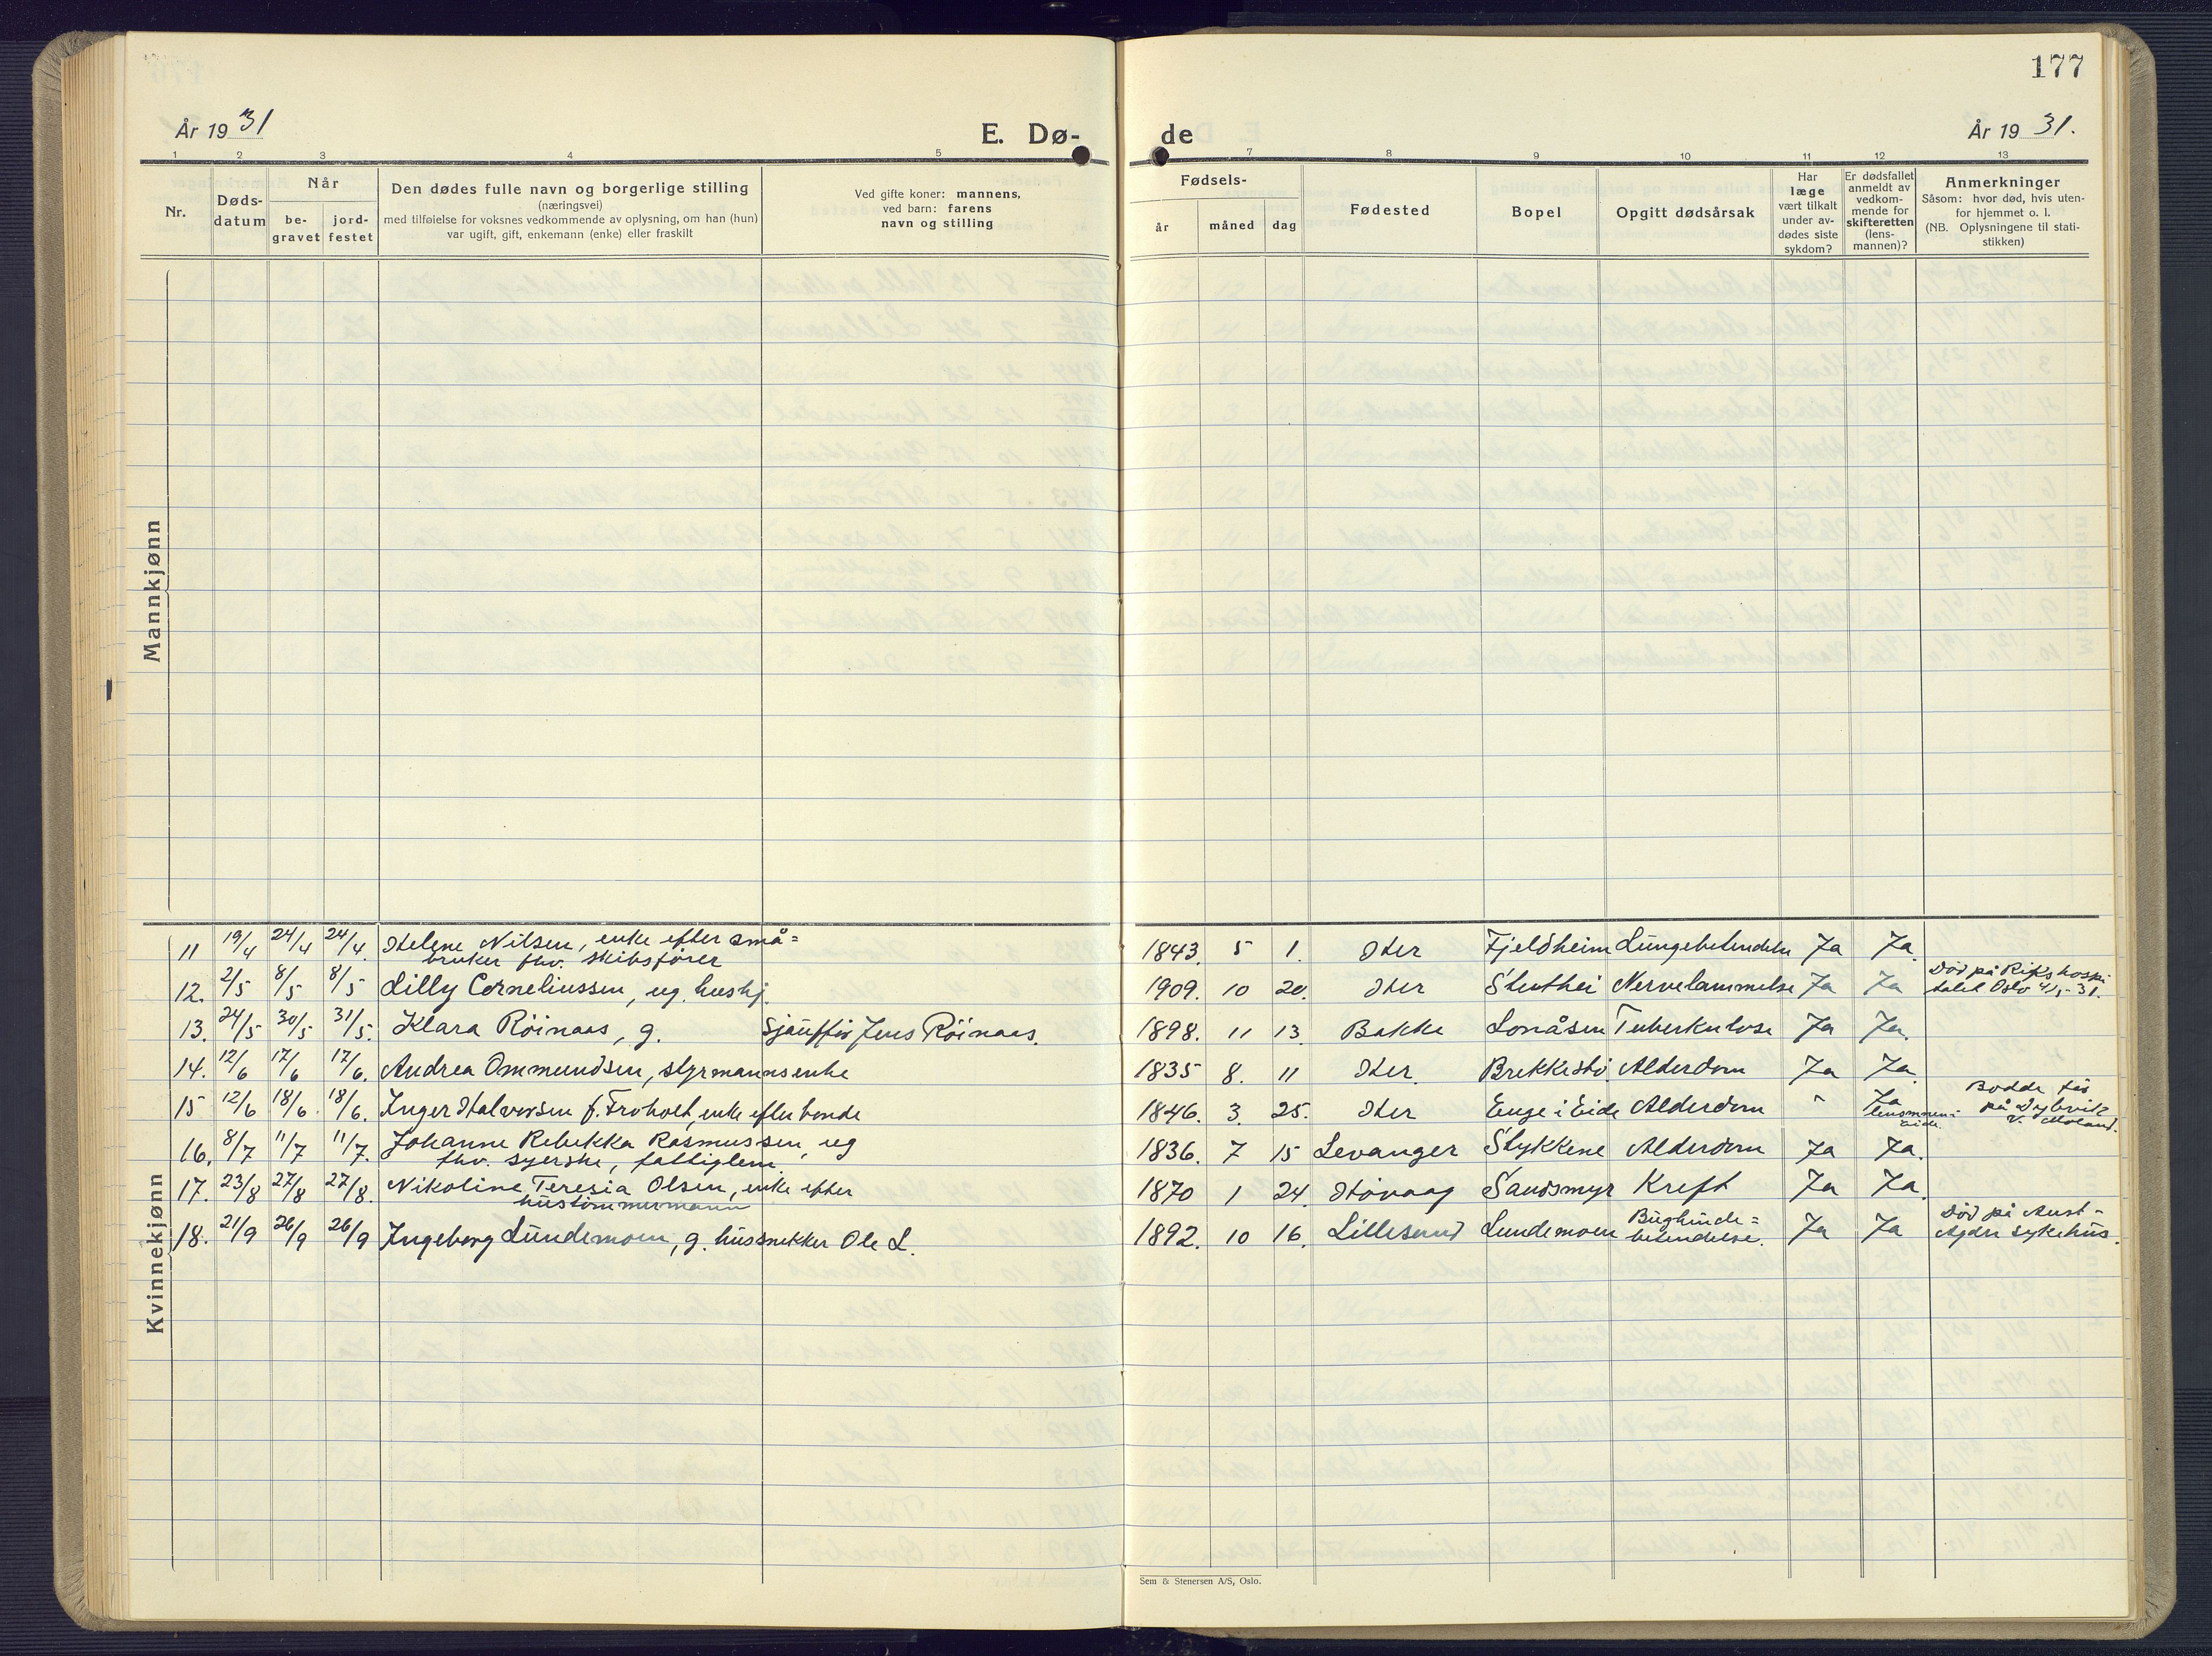 177
År 1931
E. Dø-
de
År 1931.
1 2 3 4 5 7 8 9 10 11 12 13
Nr.
Døds-
datum
Når
be-
gravet
jord-
festet
Den dødes fulle navn og borgerlige stilling
(næringsvei)
med tilføielse for voksnes vedkommende av oplysning, om han (hun)
var ugift, gift, enkemann (enke) eller fraskilt
Ved gifte koner: mannens,
ved barn: farens
navn og stilling
Fødsels-
år måned dag
Fødested
Bopel
Opgitt dødsårsak
Har
læge
vært tilkalt
under av-
dødes siste
sykdom?
Er dødsfallet
anmeldt av
vedkom-
mende for
skifteretten
(lens-
mannen)?
Anmerkninger
Såsom: hvor død, hvis uten-
for hjemmet o. l.
(NB. Oplysningene til stati-
stikken)
Mannkjønn
Kvinnekjønn
11 19/4 24/4 24/4. Helene Nilsen, enke efter små=
bruker fhv. skibsfører
1843. 5 1. Her Fjeldheim Lungebetendelse Ja Ja.
12. 2/5 8/5 8/5 Lilly Corneliussen, ug. hushj.
1909. 10 20. Her Slåthei Nervelammelse Ja Ja
Død på Rikshospi-
talet Oslo -31.
13. 24/5 30/5 31/5. Klara Röinaas, g. Sjåuffør Jens Röinaas.
1898. 11 13. Bakke Lonåsen Tuberkulose Ja Ja.
14. 12/6 17/6 17/6. Andrea Ommundsen, styrmannsenke
1835 8. 11 Her. Brekkestö. Alderdom Ja Ja.
15 12/6 18/6. 18/6. Inger Halvorsen f. Froholt, enke efter bonde
1846. 3. 25. Her Enge i Eide Alderdom - Ja
lensmannen i
Eide.
Bodde før
på Dybvik
V. Moland.
16. 8/7 11/7 11/7. Johanne Rebekka Rasmussen, ug
fhv. syerske, fattiglem.
1836. 7 15 Levanger Stykkene Alderdom Ja Ja.
17. 23/8 27/8 27/8. Nikoline Teresia Olsen, enke efter
hustömmermann
1870 1 24. Hövaag Sandsmyr Kreft Ja Ja.
18. 21/9 26/9 26/9 Ingeborg Lundemoen, g. hussnekker Ole L.
1892. 10 16. Lillesand Lundemoen Bughinde=
betendelse. Ja Ja
Död på Aust-
Agder sykehus.
Sem & Stenersen A/S, Oslo.